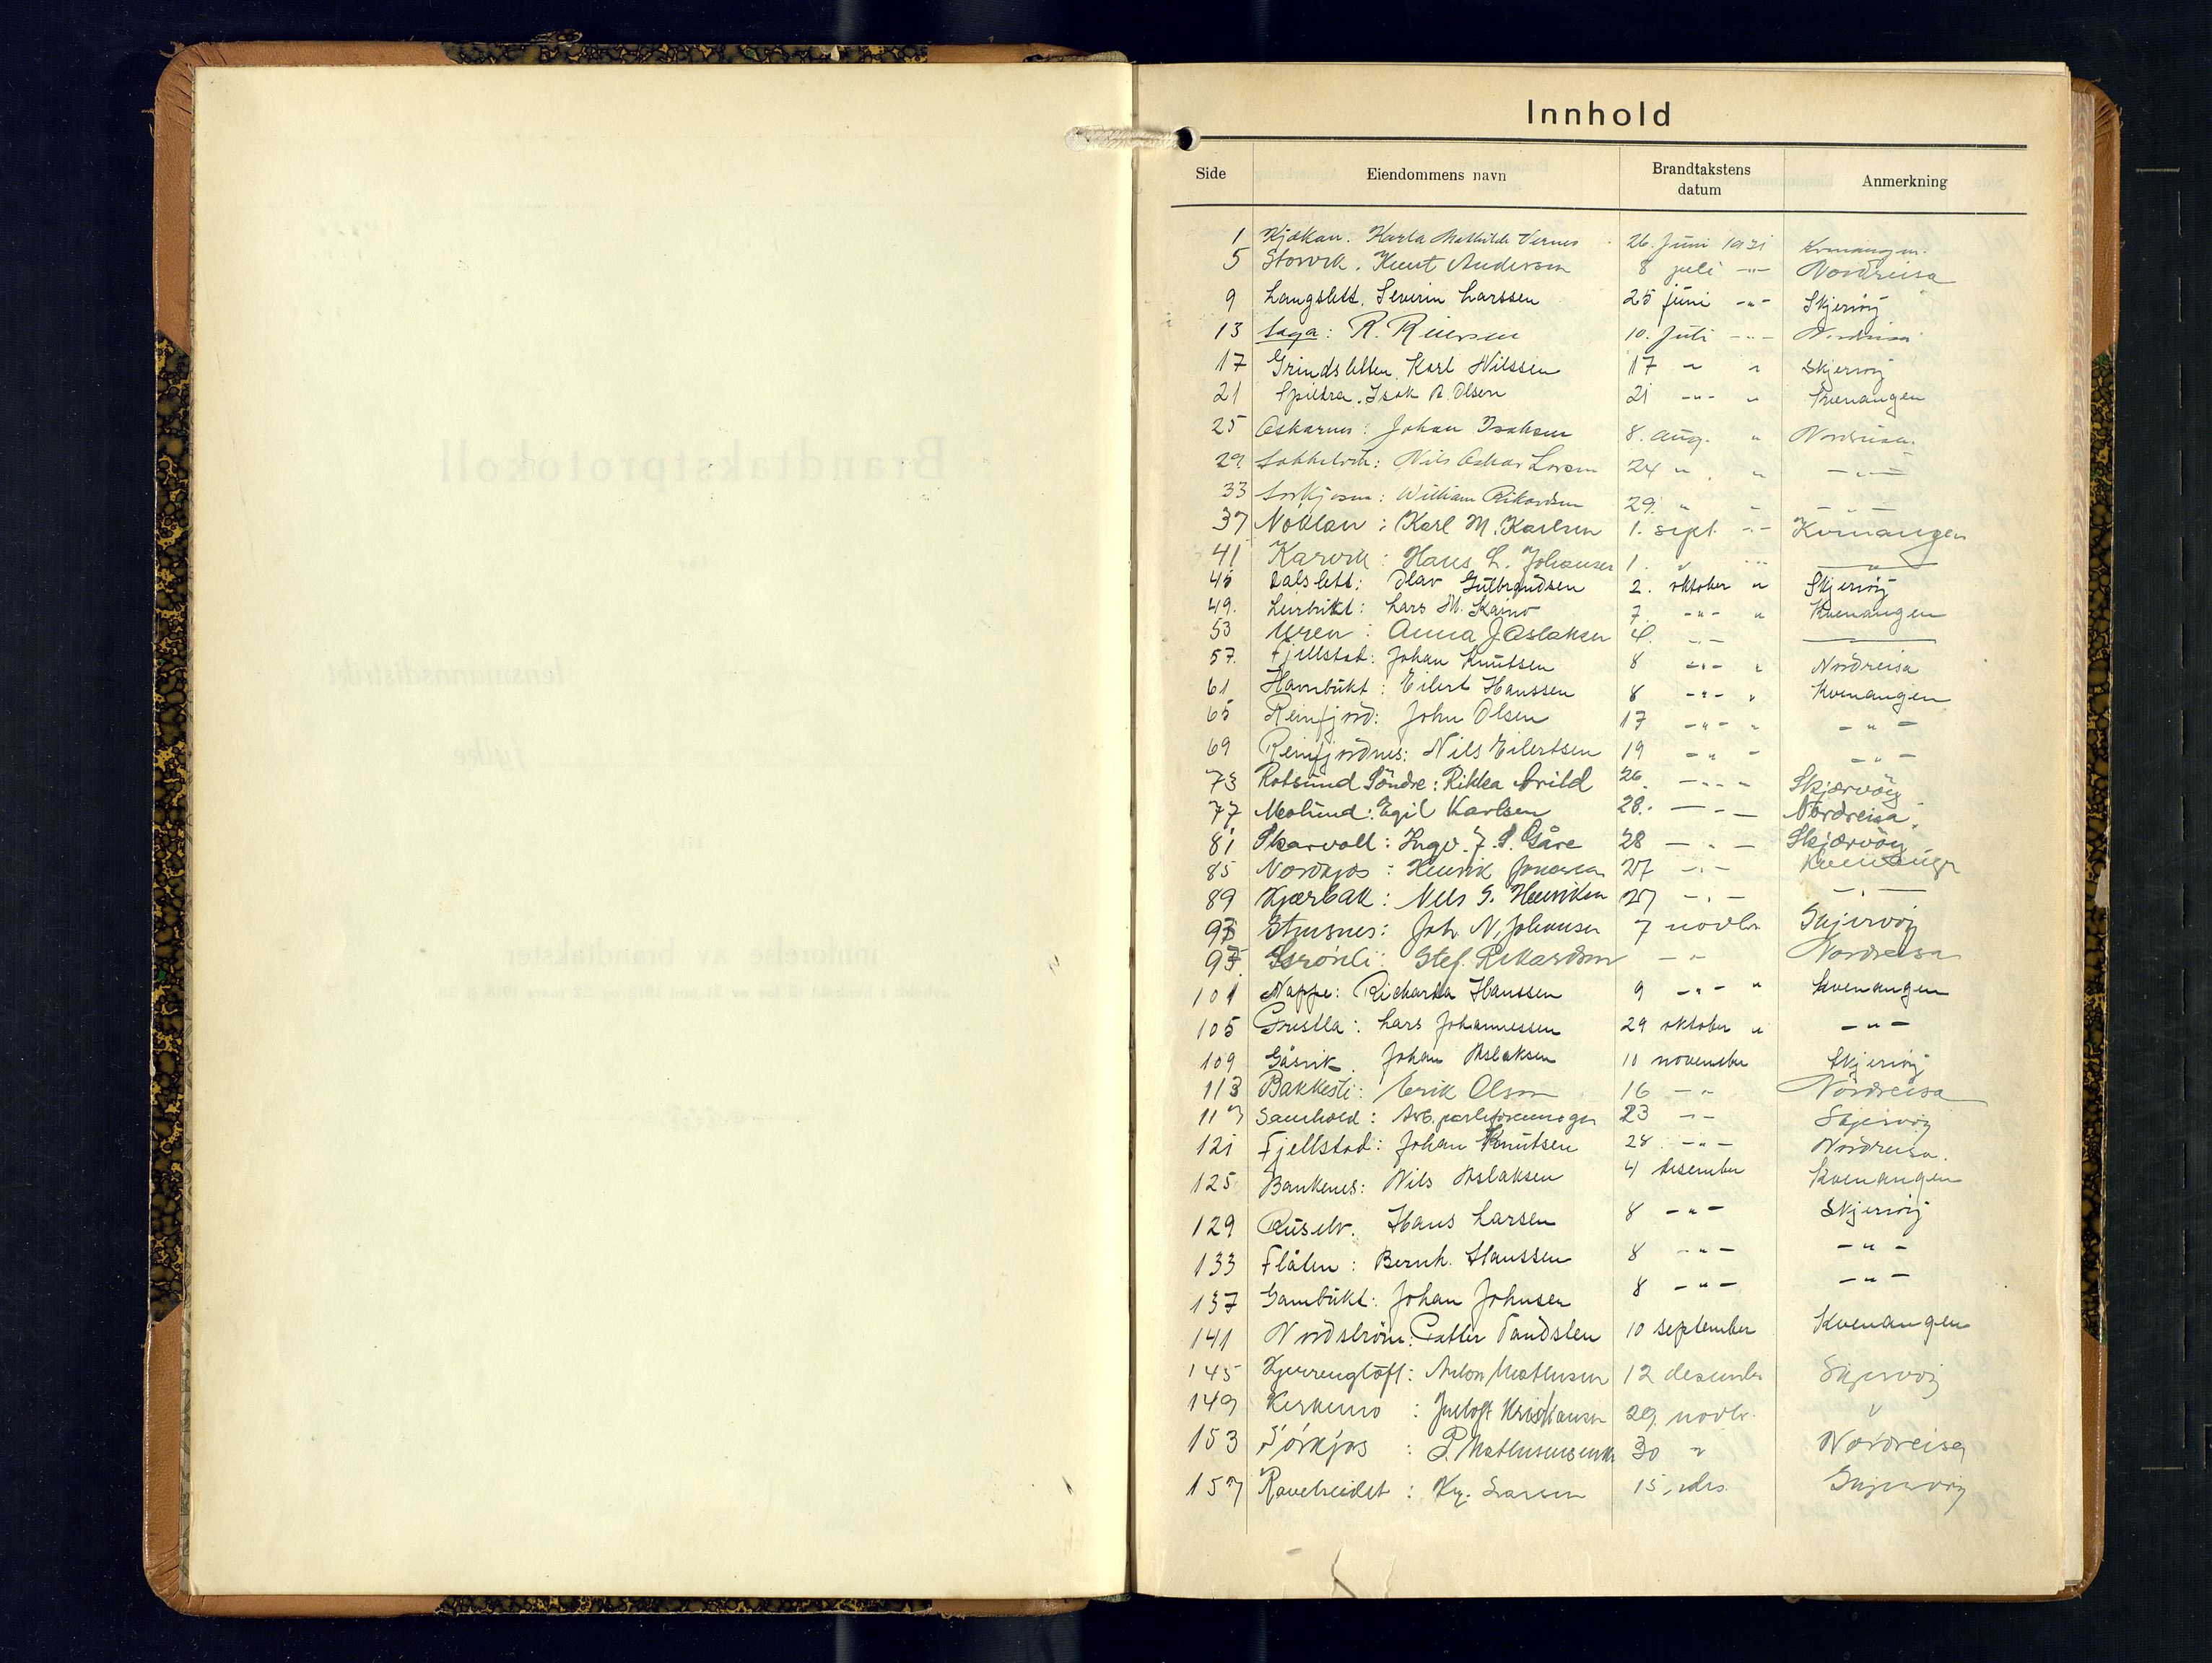 Innhold
Side Eiendommens navn Brandtakstens datum Anmerkning
1 Kjækan. Karla Mathilde Vernes 26. Juni 1931 Kvenangen.
5 Storvik. Knut Andersen 8 juli -"- Nordreisa
9 Langslett. Severin Larssen 25 juni -"- Skjervöy
13 Saga: R. Reiersen 10. Juli -"- Nordreisa
17 Grindsletten. Karl Nilssen 17 " " Skjervöy
21 Spildra. Isak A. Olsen 21 -"- " Kvenangen
25 Oskarnes: Johan Isaksen 8. aug. " Nordreisa
29 Nils Oskar Larsen 24 " " -"-
33 William Rikardsen 29. " " -"-
37 Nöklan: Karl M. Karlsen 1. sept. -"- Kvenangen
41 Karvik: Hans L. Johansen 1. " -"- "
45 Dalslett: Olav Gulbrandsen 2. oktober " Skjervöy
49. Leirbukt: Lars M. Kaino 7. -"- " Kvenangen
53 Uren: Anna J. Aslaksen 4. -"-
57. Fjellstad: Johan Knutsen 8 -"- " Nordreisa
61 Havnbukt: Eilert Hanssen 8 -"- " Kvenangen
65 Reinfjord: John Olsen 17 -"- " -"-
69 Reinfjordnes: Nils Eilertsen 19 -"- -"-
73 Rotsund Söndre: Rikka Arild 26. -"- Skjærvöy
77 Molund: Egil Karlsen 28. -"- Nordreisa.
81 Skarvoll: Ingv. J. S. Gåre 28 -"- Skjærvöy
85 Nordkjos: Henrik Jonassen 27 -"- Kvenangen
89 Kjærbak: Nils S. Henriksen 27 -"- -"-
93 Stussnes: Joh. N. Johansen 7 novbr. Skjervöy
97. Grönli: Stef. Rikardsen -"- Nordreisa
101 Nappe: Richarda Hanssen 9 -"- " Kvenangen
105 Lars Johannessen 29 oktober " -"-
109 Gåsvik. Johan Aslaksen 10 november Skjervöy
113 Bakkesti: Erik Olsen 16 -"- Nordreisa
117 Samhold: Arb.partiforeninger 23 -"- Skjervöy
121 Fjellstad: Johan Knutsen 28 -"- Nordreisa.
125 Bankenes: Nils Aslaksen 4 desember Kvenangen
129 Ruselv. Hans Larsen 8 -"- Skjervöy
133 Flåten: Bernh. Hanssen 8 -"- -"-
137 Gambukt: Johan Johnsen 8 -"- -"-
141 Nordström: Tandsten 10 september Kvenangen
145 Kjerrengtöft: Anton Mathisen 12 desember Skjervöy
149 Kerkemo: Kristiansen 29. novbr. "
153 Sörkjos: P. Mathisens enke 30 " Nordreisa
157 Raveheidet: Kr. Larsen 15. des. Skjervöy